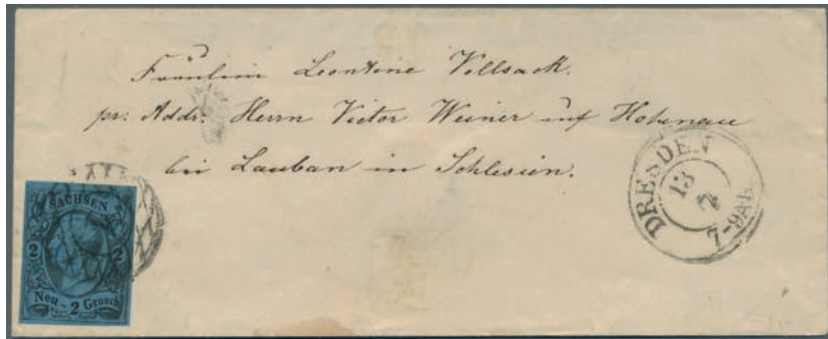 Fräulein Leontine Vollsack.
pr: Addr: Herrn Victor Weiner auf Hohenau
bei Lauban in Schlesien.
DRESDEN
13
7-9 Ab
SACHSEN
2 2
Neu - 2 Grosch